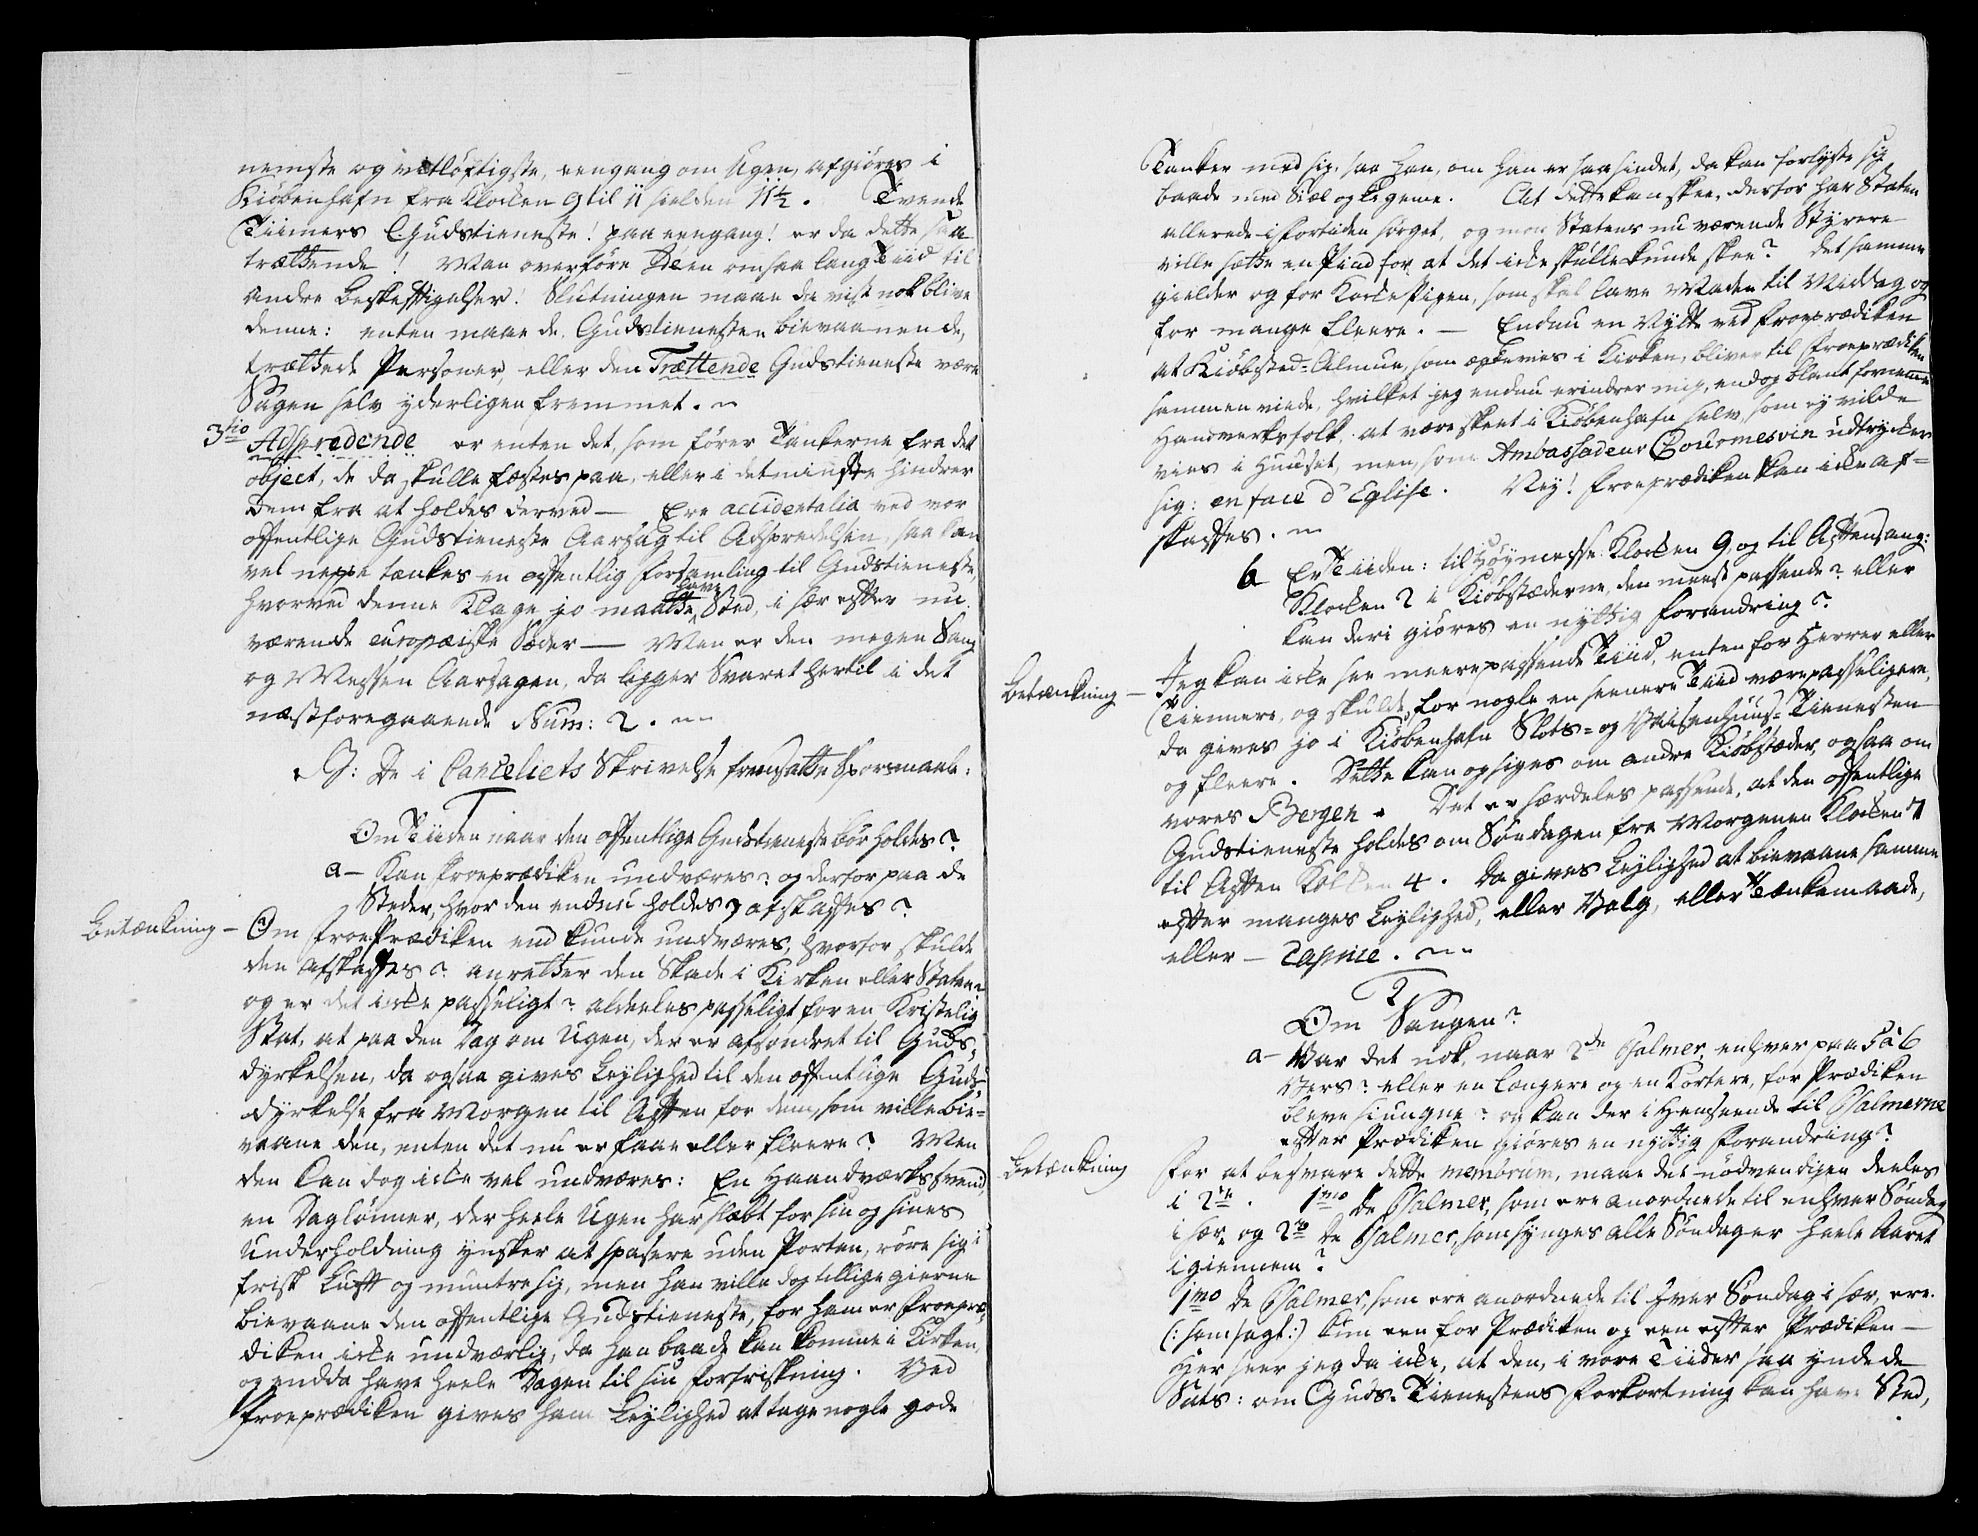 nemste og vitløftigste, eengang om Ugen, afgiøres i
Kiøbenhafn fra Klocken 9 til 11 sielden 11½. Tvende
Tiimers Gudstieneste! paa eengang! er da dette saa
trættende! Man overføre Deen omsaa lang Tiid til
andre Beskeftigelser! Slutningen maae da vist nok blive
denne: enten maae de Gudstienesten bievaanende,
trættede Personer, eller den Trættende Gudstieneste være
Sagen selv yderligen fremmet.
3tio Adspredende er enten det, som fører Tankerne fra det
object, de da skulle fæstes paa, eller i det mindste hindrer
dem fra at holdes derved — Ere accidentalia ved vor
offentlige Gudstieneste Aarsag til Adspredelsen, saa kan
vel neppe tænkes en offentlig forsamling til Gudstieneste,
hvorved denne Klage jo maatte have Sted, i sær efter nu
værende europæiske Sæder — Men er den megen Sang
og Messen Aarsagen, da ligger Svaret hertil i det
næstforegaaende Num: 2.
G: De i Canceliets Skrivelse fremsatte Spørsmaale:
1
Om Tiiden naar den offentlige Gudstieneste bør holdes?
a — Kan froeprædiken undværes? og derfor paa de
Steder, hvor den endnu holdes, afskaffes?
Betænkning — Om froePrædiken end kunde undværes, hvorfor skulde
den afskaffes? anretter den Skade i Kirken eller Staten
og er det icke passeligt? aldeeles passeligt for en Kristelig
Stat, at paa den Dag om Ugen, der er afsondret til Guds-
dyrkelsen, da ogsaa gives Leylighed til den offentlige Guds-
dyrkelse fra Morgen til Aften for dem, som ville bie-
vaane den, enten det nu er faae eller fleere? Men
den kan dog icke vel undværes: En Haandværkssvend
en Daglønner, der heele Ugen har slæbt for sin og sines
Underholdning ynsker at spasere uden Porten, røre sig i
frisk Luft og muntre sig, men han ville dog tillige gierne
bievaane den offentlige Gudstieneste, for ham er froepræ-
diken icke undværlig, da han baade kan komme i Kirken,
og endda have heele Dagen til sin forfriskning. Ved
froeprædiken gives ham Leylighed at tage nogle gode
Tanker med sig, saa han, om han er saa sindet, da kan forlyste sig
baade med Siæl og Legeme. At dette kan skee, derfor har Staten
allerede i fortiden sørget, og mon Statens nu værende Styrere
ville sætte en Pind for at det icke skulle kunde skee? det samme
gielder og for Kockepigen, som skal lave Maden til Middag og
for mange fleere. — Endnu en Nytte ved froeprædiken
at Kiøbsted-Almue, som ægtevies i Kirken, bliver til froeprædiken
sammenviede, hvilket jeg endnu erindrer mig, endog blant fornemme
Handverksfolk, at være skeet i Kiøbenhafn selv, som ey vilde
vies i Huuset, men, som Ambassadeur udtrycker
sig: en face d'Eglise. Ney! froeprædiken kan icke af-
skaffes.
b Er Tiiden: til Høymesse Klocken 9, og til Aftensang:
Klocken 2 i Kiøbstæderne, den meest passende? eller
kan deri giøres en nyttig forandring?
Betænkning — Jeg kan icke see meere passende Tiid, enten for Herrer eller
Tiennere, og skulde for nogle en seenere Tiid være passeligere,
da gives jo i Kiøbenhafn Slots- og Vaisenhuus-Tienesten
og fleere. Dette kan og siges om andre Kiøbstæder, ogsaa om
vores Bergen. Det er særdeles passende, at den offentlige
Gudstieneste holdes om Søndagen fra Morgenen Klocken 7
til Aften Klocken 4. Da gives Leylighed at bievaane samme
efter manges Leylighed, eller Valg, eller Tænkemaade,
eller — caprice.
2
Om Sangen?
a — Var det nok, naar 2de Psalmer, enhver paa 5 à 6
Vers? eller en Længere og en Kortere, før Prædiken
bleve siungne? og kan der i Henseende til Psalmerne
efter Prædiken giøres en nyttig forandring?
Betænkning for at besvare dette membrum, maae det nødvendigen deeles
i 2de. 1mo de Psalmer, som ere anordnede til enhver Søndag
i sær, og 2do De Psalmer, som synges alle Søndager heele Aaret
igiennem?
1mo De Psalmer, som ere anordnede til hver Søndag i sær, ere
(: som sagt :) kun een før Prædiken og een efter Prædiken —
Her seer jeg da icke, at den, i vore Tiider saa yndede
Sats: om Guds-Tienestens forkortning kan have Sted,